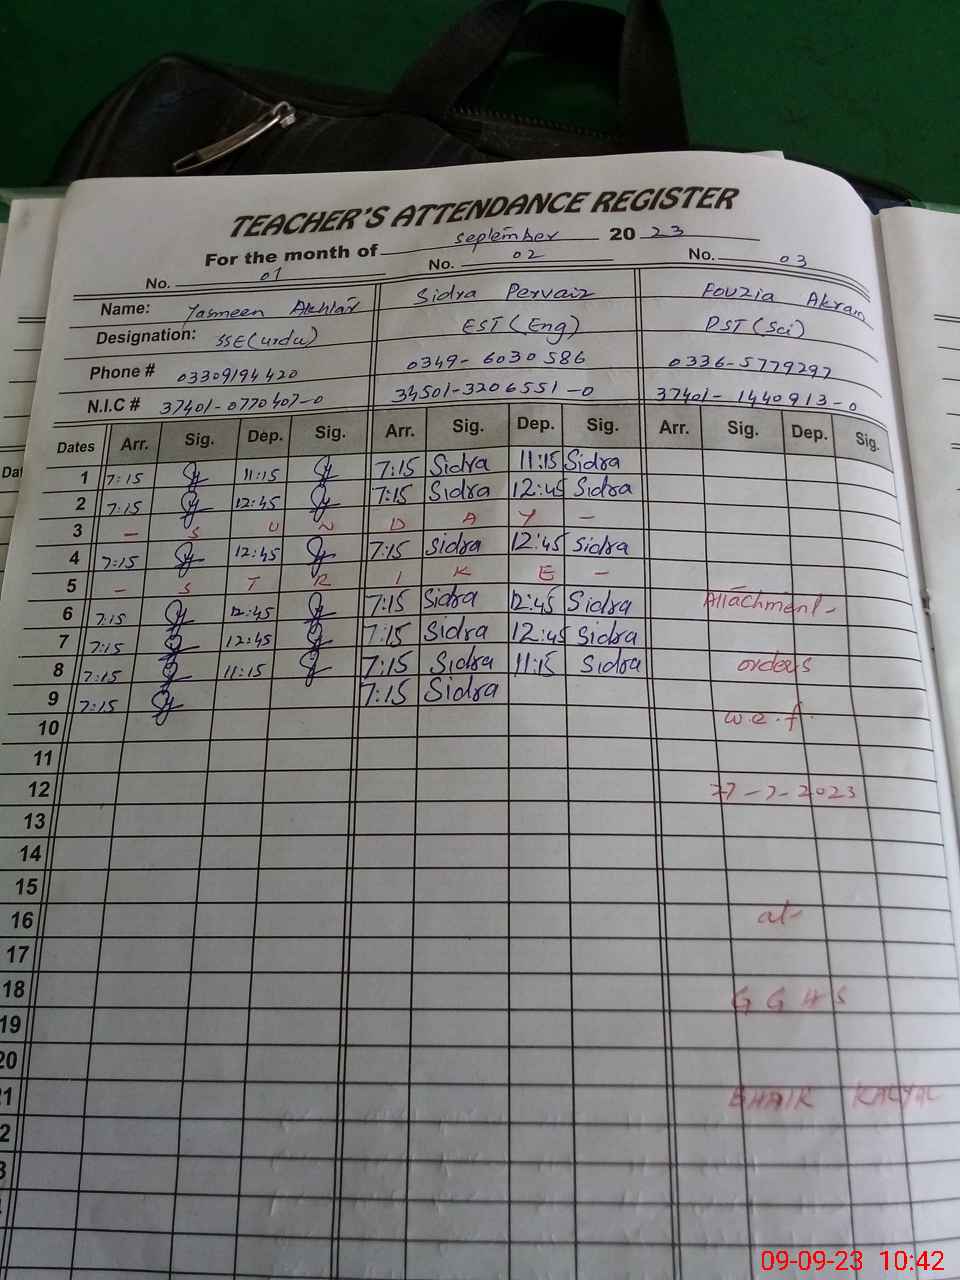 TEACHER'S ATTENDANCE REGISTER
For the month of September 20 23
No. 01 No. 02 No. 03
Name: Yasmeen Akhtar Sidra Pervaiz Fouzia Akram
Designation: SSE(urdu) EST(Eng) PST(Sci)
Phone # 03309194420 0349-6030586 0336-5779297
N.I.C # 37401-0770407-0 34501-3206551-0 37401-1440913-0
Dates Arr. Sig. Dep. Sig. Arr. Sig. Dep. Sig. Arr. Sig. Dep. Sig.
1 7:15 11:15 7:15 Sidra 11:15 Sidra
2 7:15 12:45 7:15 Sidra 12:45 Sidra
3 - S U N D A Y -
4 7:15 12:45 7:15 Sidra 12:45 Sidra
5 - S T R I K E -
6 7:15 12:45 7:15 Sidra 12:45 Sidra Attachment-
7 7:15 12:45 7:15 Sidra 12:45 Sidra
8 7:15 11:15 7:15 Sidra 11:15 Sidra orders
9 7:15 7:15 Sidra
10 w.e.f.
11
12 27-7-2023
13
14
15
16 at
17
18 G G H S
19
20
21 BHAIR KALYAL
09-09-23 10:42